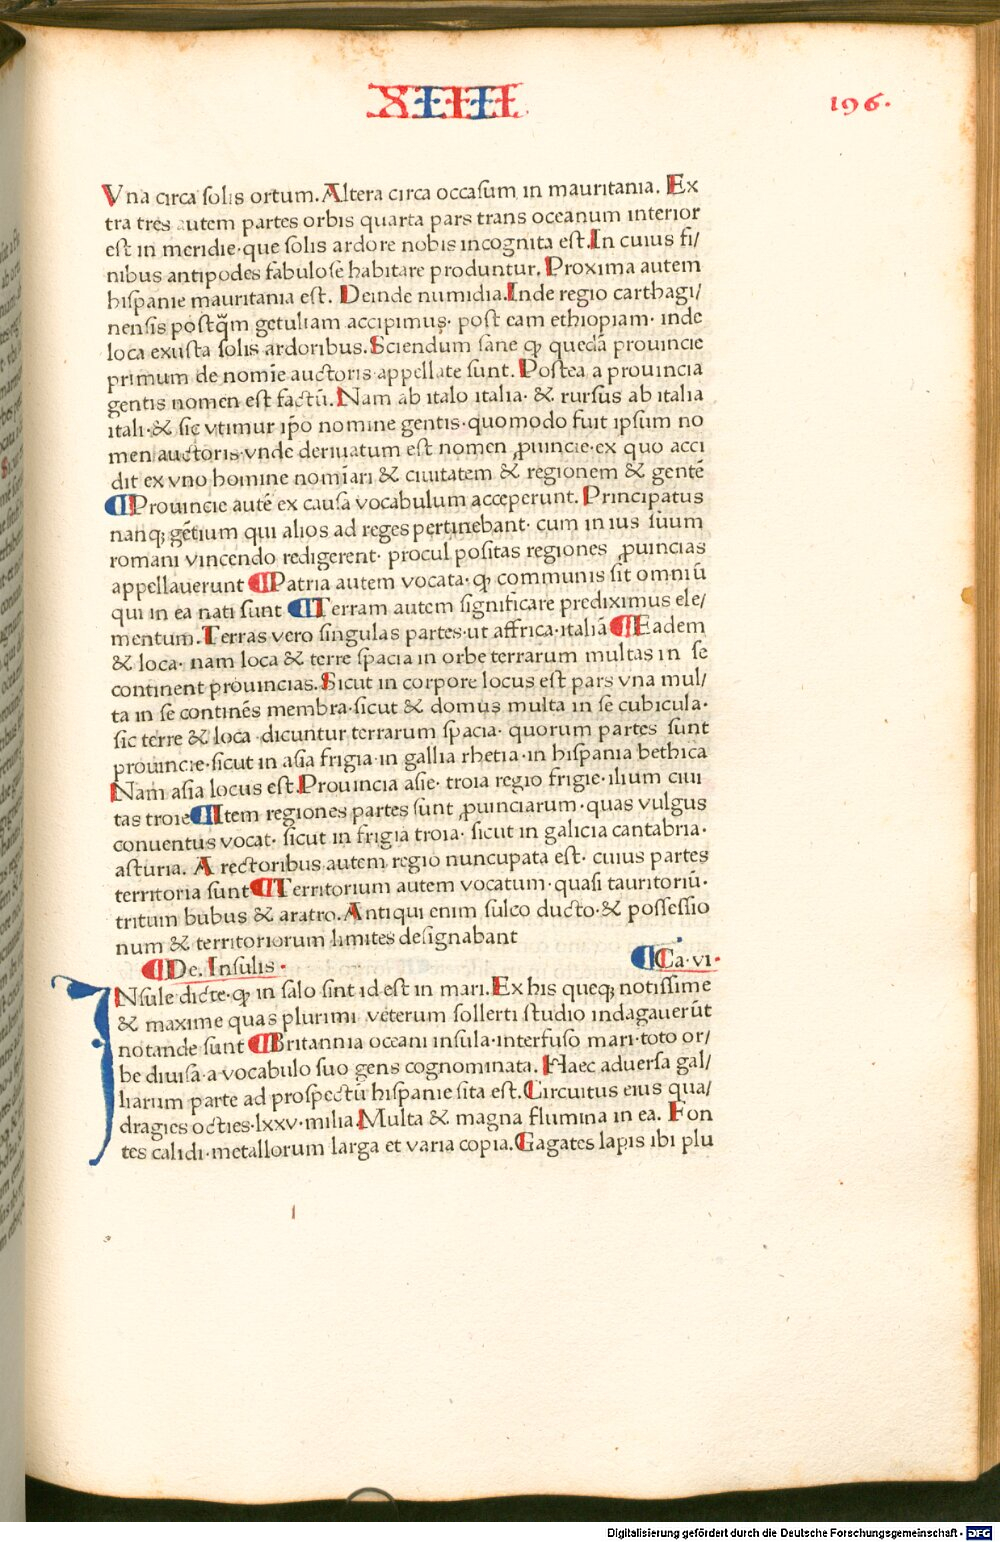 XIIII
196.
Vna circa ſolis ortum. Altera circa occaſum in mauritania. Ex
tra tres autem partes orbis quarta pars trans oceanum interior
eſt in meridie·que ſolis ardore nobis incognita eſt. In cuius fi/
nibus antipodes fabuloſe habitare produntur. Proxima autem
hiſpanie mauritania eſt. Deinde numidia. Inde regio carthagi/
nenſis poſtq̃m getuliam accipimus· poſt eam ethiopiam· inde
loca exuſta ſolis ardoribus. Sciendum ſane ꝙ quedã prouincie
primum de nomĩe auctoris appellate ſunt. Poſtea a prouincia
gentis nomen eſt factũ. Nam ab italo italia· & rurſus ab italia
itali·& ſic vtimur ip̃o nomine gentis·quomodo fuit ipſum no
men auctoris·vnde deriuatum eſt nomen ꝓuincie·ex quo acci
dit ex vno homine nomĩari & ciuitatem & regionem & gentẽ
¶ Prouincie autẽ ex cauſa vocabulum acceperunt. Principatus
nanqꝫ gẽtium qui alios ad reges pertinebant· cum in ius ſuum
romani vincendo redigerent· procul poſitas regiones ꝓuincias
appellauerunt ¶ Patria autem vocata·ꝙ communis ſit omniũ
qui in ea nati ſunt ¶ Terram autem ſignificare prediximus ele/
mentum. Terras vero ſingulas partes·ut affrica·italiã ¶ Eadem
& loca· nam loca & terre ſpacia in orbe terrarum multas in ſe
continent prouincias. Sicut in corpore locus eſt pars vna mul/
ta in ſe continẽs membra·ſicut & domus multa in ſe cubicula·
ſic terre & loca dicuntur terrarum ſpacia· quorum partes ſunt
prouincie·ſicut in aſia frigia·in gallia rhetia·in hiſpania bethica
Nam aſia locus eſt. Prouincia aſie· troia regio frigie·ilium ciui
tas troie ¶ Item regiones partes ſunt ꝓuinciarum·quas vulgus
conuentus vocat· ſicut in frigia troia· ſicut in galicia cantabria·
aſturia. A rectoribus autem regio nuncupata eſt· cuius partes
territoria ſunt ¶ Territorium autem vocatum·quaſi tauritoriũ·
tritum bubus & aratro. Antiqui enim ſulco ducto·& poſſeſſio
num & territoriorum limites deſignabant
¶ De. Inſulis· ¶ Ca·vi·
INſule dicte·ꝙ in ſalo ſint id eſt in mari. Ex his queqꝫ notiſſime
& maxime quas plurimi veterum ſollerti ſtudio indagauerũt
notande ſunt ¶ Britannia oceani inſula·interfuſo mari·toto or/
be diuiſa·a vocabulo ſuo gens cognominata. Haec aduerſa gal/
liarum parte ad proſpectũ hiſpanie ſita eſt. Circuitus eius qua/
dragies octies·lxxv·milia. Multa & magna flumina in ea. Fon
tes calidi·metallorum larga et varia copia. Gagates lapis ibi plu
Digitalisierung gefördert durch die Deutsche Forschungsgemeinschaft · DFG